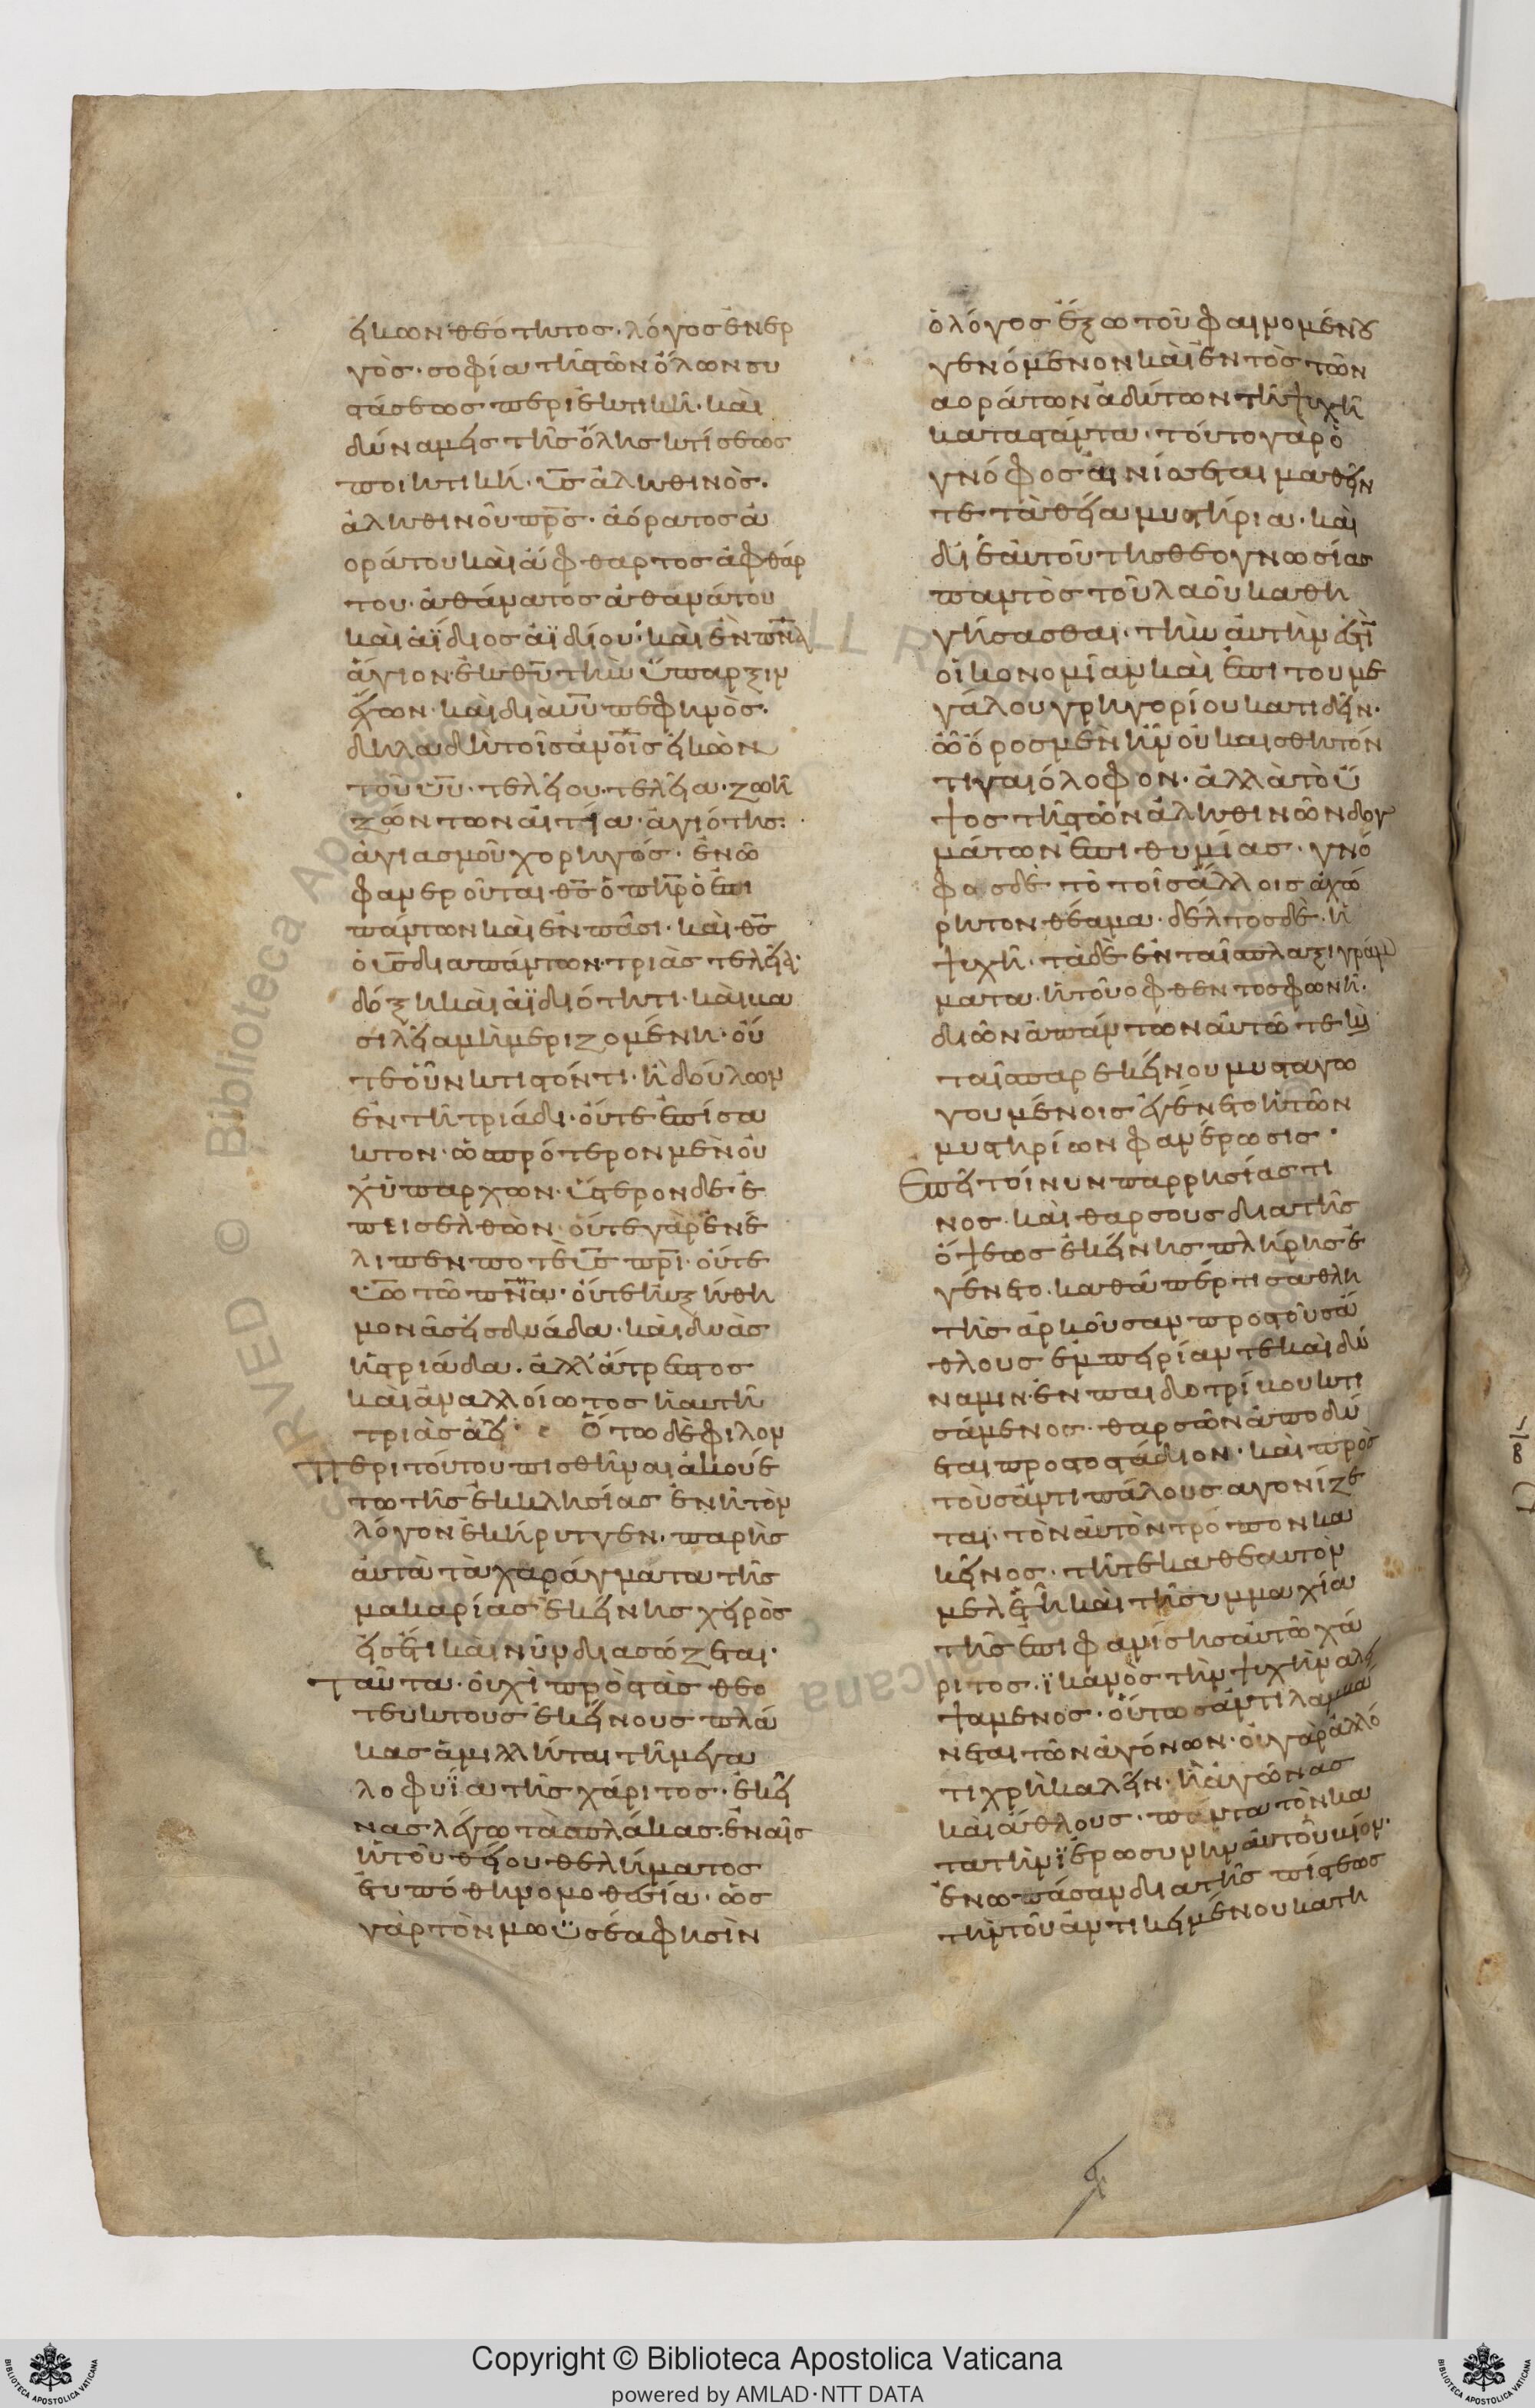 εἰκὼν θεότητος· λόγος ἐνερ
γὸς· σοφία τῆς τῶν ὅλων συ
στάσεως περιεκτικὴ· καὶ
δύναμεις τῆς ὅλης κτίσεως
ποιητικὴ· υ̅ς̅ ἀληθινὸς·
ἀληθινοῦ π̅ρ̅ς̅· ἀόρατος ἀ
οράτου καὶ ἄφθαρτος ἀφθάρ
του· ἀθάνατος ἀθανάτου
καὶ ἀΐδιος ἀϊδίου· καὶ ἓν π̅ν̅α̅
ἅγιον· ἐκ θ̅υ̅ τὴν ὕπαρξιν
ἔχων· καὶ δι α̅υ̅υ̅ πεφηνὸς·
δηλαδὴ τοῖς α̅ν̅ο̅ι̅ς̅ εἰκὼν
τοῦ υ̅υ̅· τελείου· τελεία· ζωὴ
ζώντων αἰτία· ἁγιότης·
ἁγιασμοῦ χορηγός· ἐν ὧ
φανεροῦται θ̅ς̅ ὁ π̅η̅ρ̅ ὁ ἐπι
πάντων καὶ ἐν πᾶσι· καὶ θ̅ς̅
ὁ υ̅ς̅ δια πάντων· τριὰς τελεία·
δόξη καὶ ἀϊδιότητι· καὶ βα
σιλεία μὴ μεριζομένη· οὔ
τε οὖν κτιστόν τι· ἢ δούλων
ἐν τῇ τριάδι· οὔτε ἐπίσα
κτον· ὡς πρότερον μὲν οὐ
χ ὑπάρχων· ὕστερον δὲ ἐ
πεισελθὼν· οὔτε γὰρ ἐνέ
λιπεν ποτὲ υ̅ς̅ π̅ρ̅ι̅· οὔτε
υ̅ω̅ τῶ π̅ν̅α̅· οὔτε ηὐξήθη
μονὰς εἰς δυάδα· καὶ δυὰς
εἰς τριάδα· ἀλλ' ἄτρεπτος
καὶ ἀναλλοίωτος ἡ αυτὴ
τριὰς ἀεὶ· Ὅτω δὲ φίλον
περι τούτου πισθῆναι ἀκουέ
τω τῆς ἐκκλησίας ἐν ᾗ τὸν
λόγον ἐκήρυττεν· παρ ῇς
αὐτὰ τὰ χαράγματα τῆς
μακαρίας ἐκείνης χειρὸς
εἰσέτι καὶ νῦν διασώζεται·
ταῦτα· οὐχὶ πρὸς τὰς θεο
τεύκτους ἐκείνους πλά
κας ἁμιλλῆται τῇ μεγα
λοφυΐα τῆς χάριτος· ἐκεί
νας λέγω τὰς πλάκας· ἐν αἷς
ἡ τοῦ θείου θελήματος
ἐτυπώθη νομοθεσία· ὡς
γὰρ τὸν μωϋσέα φησὶν
ὁ λόγος ἔξω τοῦ φαινομένου
γενόμενον καὶ ἐντὸς τῶν
αοράτων ἀδύτων τῇ ψυχῇ
καταστάντα· τοῦτο γὰρ ὁ
γνόφος αἰνίσσεται μαθεῖν
τε τὰ θεῖα μυστήρια· καὶ
δι ἑαυτοῦ τῆς θεογνωσίας
παντὸς τοῦ λαοῦ καθη
γήσασθαι· τὴν αὐτὴν ἔστι
οἰκονομίαν καὶ ἐπι του με
γάλου γρηγορίου κατιδεῖν·
ὧ ὄρος μὲν ἦν οὐκ αισθητόν
τι γαιόλοφον· ἀλλὰ τὸ ὕ
ψος τῆς τῶν ἀληθινῶν δογ
μάτων ἐπιθυμίας· γνό
φος δὲ τὸ τοῖς ἄλλοις ἀχώ
ρητον θέαμα· δέλτος δὲ ἡ
ψυχὴ· τὰ δὲ ἐν ταῖς πλαξι γράμ
ματα· ἡ τοῦ οφθέντος φωνὴ·
δι ὧν ἁπάντων αὐτῶ τε καὶ
ταῖς παρ εκείνου μυσταγω
γουμένοις ἐγένετο ἡ τῶν
μυστηρίων φανέρωσις·
Ἐπεὶ τοίνυν παρρησίας τι
νος καὶ θάρσους δια τῆς
ὄψεως ἐκείνης πλήρης ἐ
γένετο· καθάπέρ τις αθλη
τῆς ἀρκοῦσαν προς τοὺς ἄ
θλους ἐμπειρίαν τε καὶ δύ
ναμιν· ἐν παιδοτρίβου κτη
σάμενος· θαρσῶν ἀποδύ
εται προς το στάδιον· καὶ πρὸς
τοὺς ἀντιπάλους αγονίζε
ται· τὸν αὐτὸν τρόπον κα
κεῖνος· τῇ τε καθ εαυτὸν
μελέτῃ καὶ τῇ συμμαχία
τῆς ἐπιφανίσης αὐτῶ χά
ριτος· ἱκανῶς τὴν ψυχὴν αλει
ψάμενος· οὕτως ἀντιλαμβά
νεται τῶν ἀγόνων· οὐ γὰρ ἄλλό
τι χρὴ καλεῖν· ἢ ἀγῶνας
καὶ ἄθλους· πάντα τὸν κα
τα τὴν ἱερωσύνην αὐτοῦ βίον·
ἐν ω πάσαν δια τῆς πίστεως
τὴν τοῦ ἀντικειμένου κατη